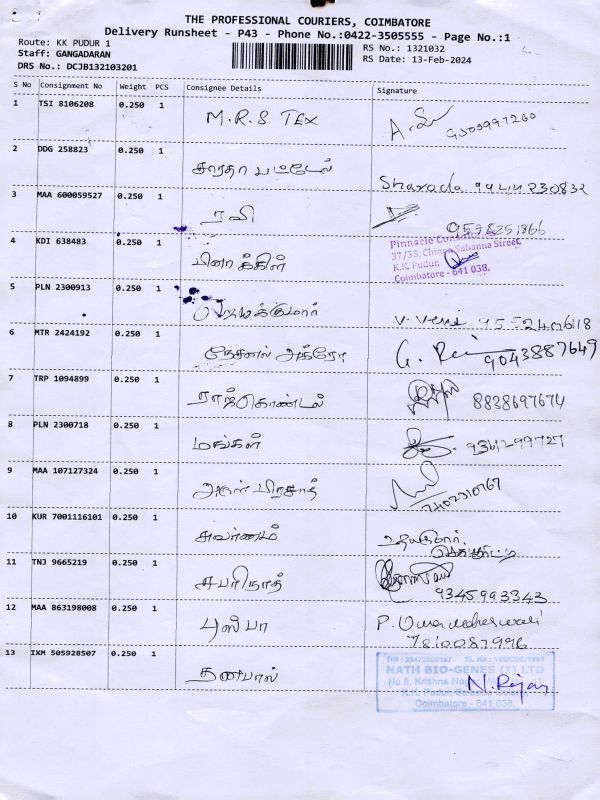 THE PROFESSIONAL COURIERS, COIMBATORE
Delivery Runsheet - P43 - Phone No.:0422-3505555 - Page No.:1
Route: KK PUDUR 1
RS No.: 1321032
Staff: GANGADARAN
RS Date: 13-Feb-2024
DRS No.: DCJB132103201
S No Consignment No Weight PCS Consignee Details Signature
1 TSI 8106208 0.250 1 M.R.S TEX
2 DDG 258823 0.250 1 சாரதா பட்டேல் Sharada 9944230832
3 MAA 600059527 0.250 1 ரவி 9578251866
4 KDI 638483 0.250 1 பினாக்கிள்
Pinnacle
37/33, Chinna Subanna Street,
K.K. Pudur,
Coimbatore - 641 038.
5 PLN 2300913 0.250 1 V. Veni
6 MTR 2424192 0.250 1 நேசனல் அக்ரோ 9043887649
7 TRP 1094899 0.250 1 8838697674
8 PLN 2300718 0.250 1 மங்கள்
9 MAA 107127324 0.250 1 அருள் பிரசாத்
10 KUR 7001116101 0.250 1 சுவர்ணம்
11 TNJ 9665219 0.250 1 சபரிநாத் 9345993343
12 MAA 863198008 0.250 1 புஸ்பா P. Uma maheswari
7810087996
13 IXM 505928507 0.250 1 தனபால்
NATH BIO-GENES (I) LTD
No 6, Krishna
K.K. Pudur,
Coimbatore - 641 038.
N. Rajan